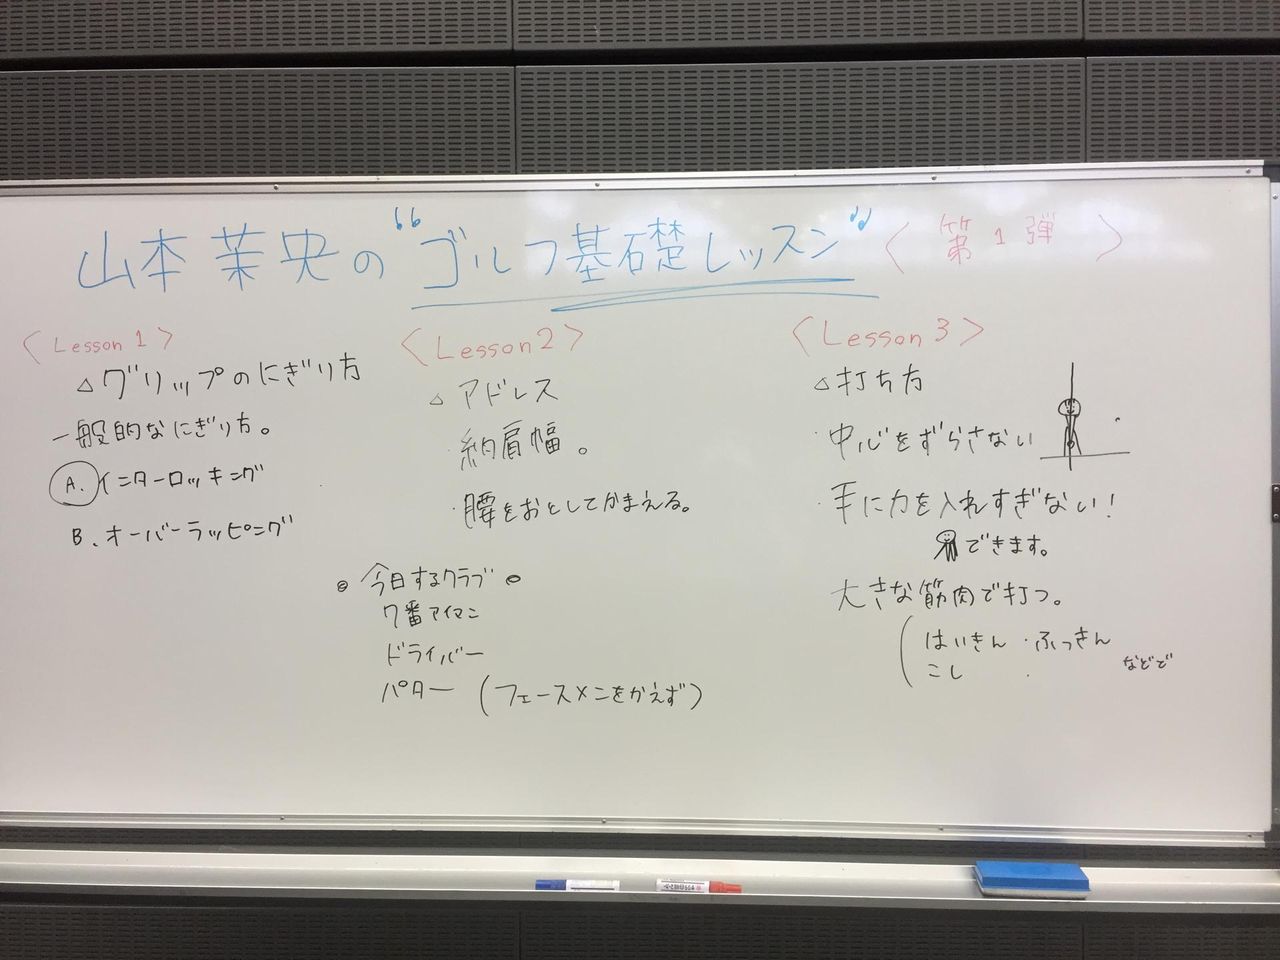 山本茉央の“ゴルフ基礎レッスン”〈第1弾〉
〈Lesson1〉
△グリップのにぎり方
一般的なにぎり方。
A.インターロッキング
B.オーバーラッピング
〈Lesson2〉
△アドレス
・約肩幅。
・腰をおとしてかまえる。
◎今日するクラブ◎
7番アイアン
ドライバー
パター（フェースメンをかえず）
〈Lesson3〉
△打ち方
・中心をずらさない
・手に力を入れすぎない!
できます。
大きな筋肉で打つ。
（はいきん・ふっきん
こし・などで